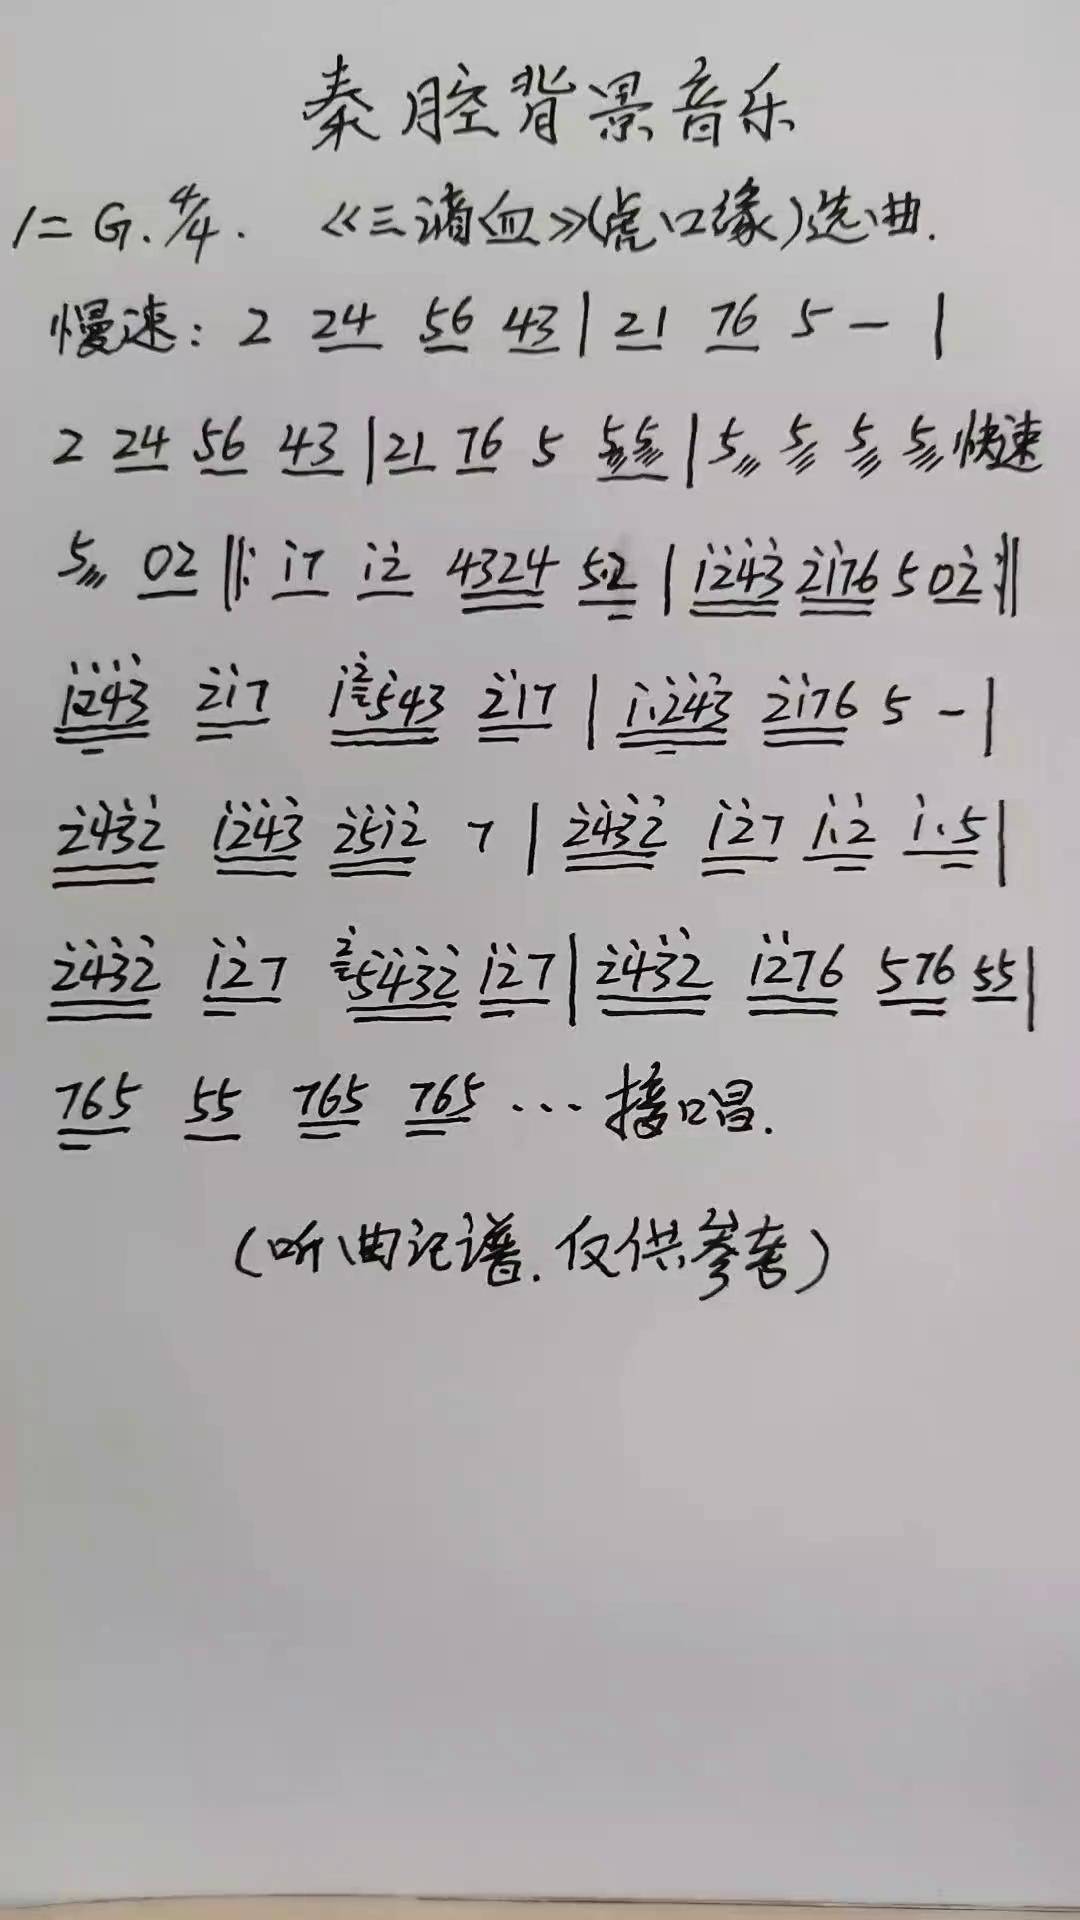 秦腔背景音乐
1=G. 4/4. 《三滴血》(虎口缘)选曲.
慢速: 2 24 56 43 | 21 76 5 — |
2 24 56 43 | 21 76 5 55 | 5 5 5 5 快速
5 02 ‖: i7 i2̇ 4324 5.2 | i̇2̇4̇3̇ 2̇i̇76 5 02̇ :‖
i̇2̇4̇3̇ 2̇i̇7 i̇2̇5̇43 2̇i7 | i̇.2̇4̇3̇ 2̇i̇76 5 — |
2̇4̇3̇2̇ i̇2̇4̇3̇ 2̇5̇i̇2̇ 7 | 2̇4̇3̇2̇ i̇2̇7 i̇.2̇ i̇.5 |
2̇4̇3̇2̇ i̇2̇7 2̇5̇4̇3̇2̇ i̇2̇7 | 2̇4̇3̇2̇ i̇2̇76 576 55 |
765 55 765 765 … 接唱.
(听曲记谱.仅供参考)